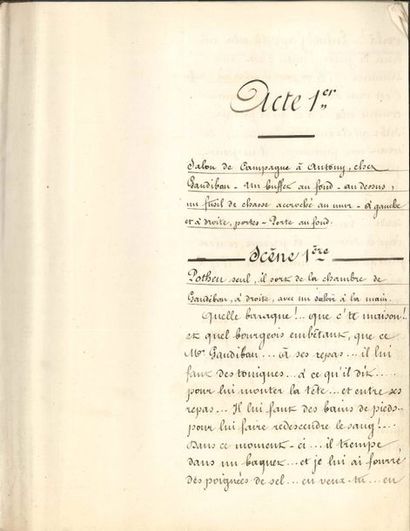 Acte 1er
Salon de Campagne à Antony, chez
Gaudiban - Un buffet au fond - au dessus,
un fusil de chasse accroché au mur - à gauche
et à droite, portes - Porte au fond.
Scène 1ère
Potheu seul, il sort de la chambre de
Gaudiban, à droite, avec un à la main.
Quelle baraque !.. que c'tt maison !
et quel bourgeois embêtant, que ce
Mr Gaudiban... à ses repas... il lui
faut des toniques.. à ce qu'il dit...
pour lui monter la tête... et entre ses
repas... Il lui faut des bains de pieds..
pour lui faire redescendre le sang !...
Dans ce moment-ci... il trempe
dans un baquet.. et je lui ai fourré
des poignées de sel... en veux-tu... en